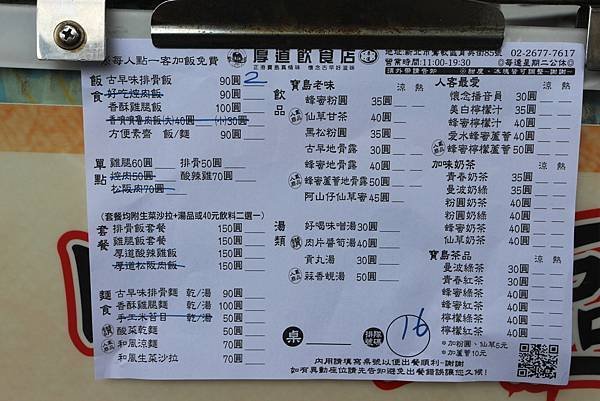 每人點一客加飯免費
厚道飲食店
正港寶島真條味 懷念古早好滋味
地址:新北市鶯歌區育英街85號 02-2677-7617
營業時間:11:00-19:30 ◎每逢星期二公休◎
飯食
古早味排骨飯 90圓 2
好吃焢肉飯 90圓
香酥雞腿飯 100圓
香噴噴魯肉飯(大)40圓 (小)30圓
方便素齋 飯/麵 90圓
單點
雞腿60圓 排骨50圓
焢肉50圓 酸辣雞70圓
松阪肉70圓
(套餐均附生菜沙拉+湯品或40元飲料二選一)
套餐
排骨飯套餐 150圓
雞腿飯套餐 150圓
厚道酸辣雞飯 150圓
厚道松阪肉飯 150圓
麵食
古早味排骨麵 乾/湯 90圓
香酥雞腿麵 乾/湯 100圓
手工米苔目 乾/湯 50圓
酸菜乾麵 50圓
和風涼麵 70圓
和風生菜沙拉 70圓
飲品
寶島老味 涼 熱
蜂蜜粉圓 35圓
仙草甘茶 40圓
黑松粉圓 35圓
古早地骨露 30圓
蜂蜜地骨露 40圓
蜂蜜蘆薈地骨露 50圓
阿山仔仙草蜜 45圓
湯類
好喝味噌湯 30圓
肉片醬筍湯 40圓
貢丸湯 30圓
蒜香蜆湯 50圓
人客最愛 涼 熱
懷念播音員 30圓
美白檸檬汁 40圓
蜂蜜檸檬汁 40圓
愛水蜂蜜蘆薈 50圓
蜂蜜檸檬蘆薈 50圓
加味奶茶 涼 熱
青春奶茶 35圓
曼波奶綠 35圓
粉圓奶茶 40圓
粉圓奶綠 40圓
蜂蜜奶茶 40圓
仙草奶茶 40圓
寶島茶品 涼 熱
曼波綠茶 30圓
青春紅茶 30圓
蜂蜜綠茶 40圓
蜂蜜紅茶 40圓
檸檬綠茶 40圓
檸檬紅茶 40圓
*加粉圓、仙草5元
*加蘆薈10元
桌 號碼 16
內用請填寫桌號以便出餐順利~謝謝
如有異動座位請先告知避免出餐錯誤讓您久候!